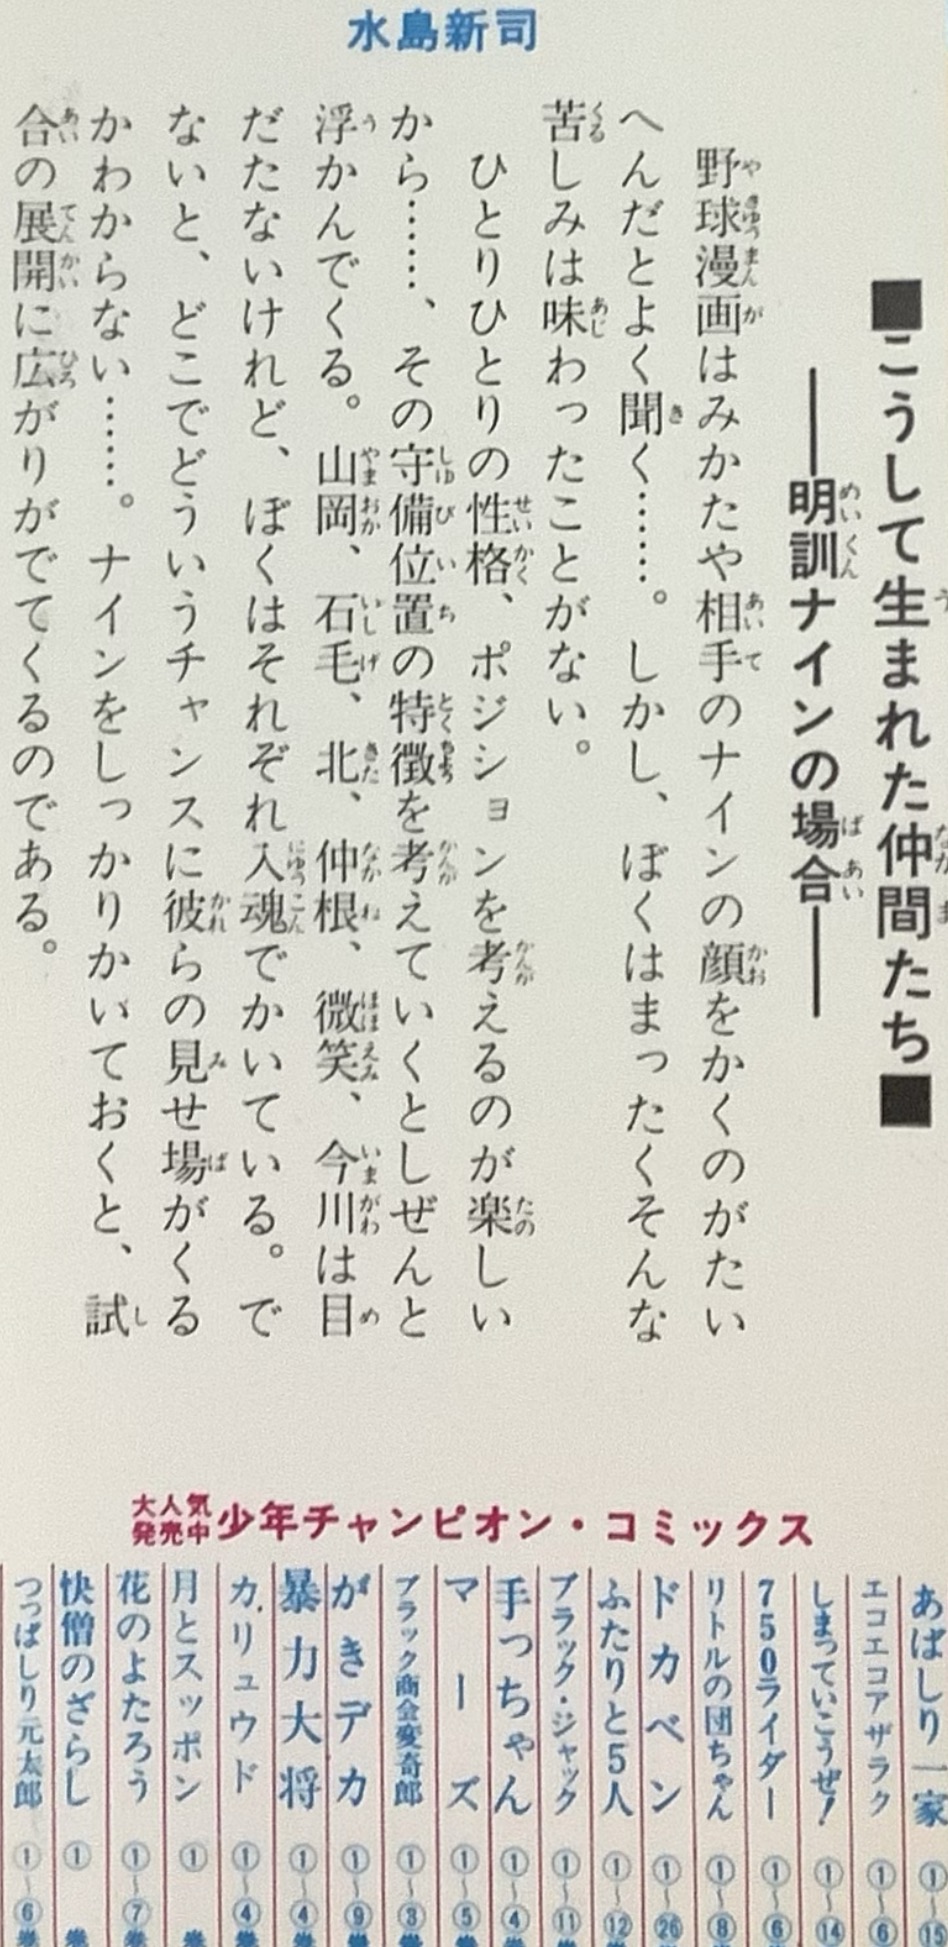 水島新司
■こうして生まれた仲間たち■
――明訓ナインの場合――
野球漫画はみかたや相手のナインの顔をかくのがたい
へんだとよく聞く……。しかし、ぼくはまったくそんな
苦しみは味わったことがない。
ひとりひとりの性格、ポジションを考えるのが楽しい
から……、その守備位置の特徴を考えていくとしぜんと
浮かんでくる。山岡、石毛、北、仲根、微笑、今川は目
だたないけれど、ぼくはそれぞれ入魂でかいている。で
ないと、どこでどういうチャンスに彼らの見せ場がくる
かわからない……。ナインをしっかりかいておくと、試
合の展開に広がりがでてくるのである。
大人気発売中 少年チャンピオン・コミックス
あばしり一家 ①〜⑮
エコエコアザラク ①〜⑥
しまっていこうぜ! ①〜⑭
750ライダー ①〜⑥
リトルの団ちゃん ①〜⑧
ドカベン ①〜㉖
ふたりと5人 ①〜⑫
ブラック・ジャック ①〜⑪
手っちゃん ①〜④
マーズ ①〜⑤
ブラック商会変奇郎 ①〜③
がきデカ ①〜⑨
暴力大将 ①〜④
カリュウド ①〜④
月とスッポン ①
花のよたろう ①〜⑦
快僧のざらし ①
つっぱしり元太郎 ①〜⑥